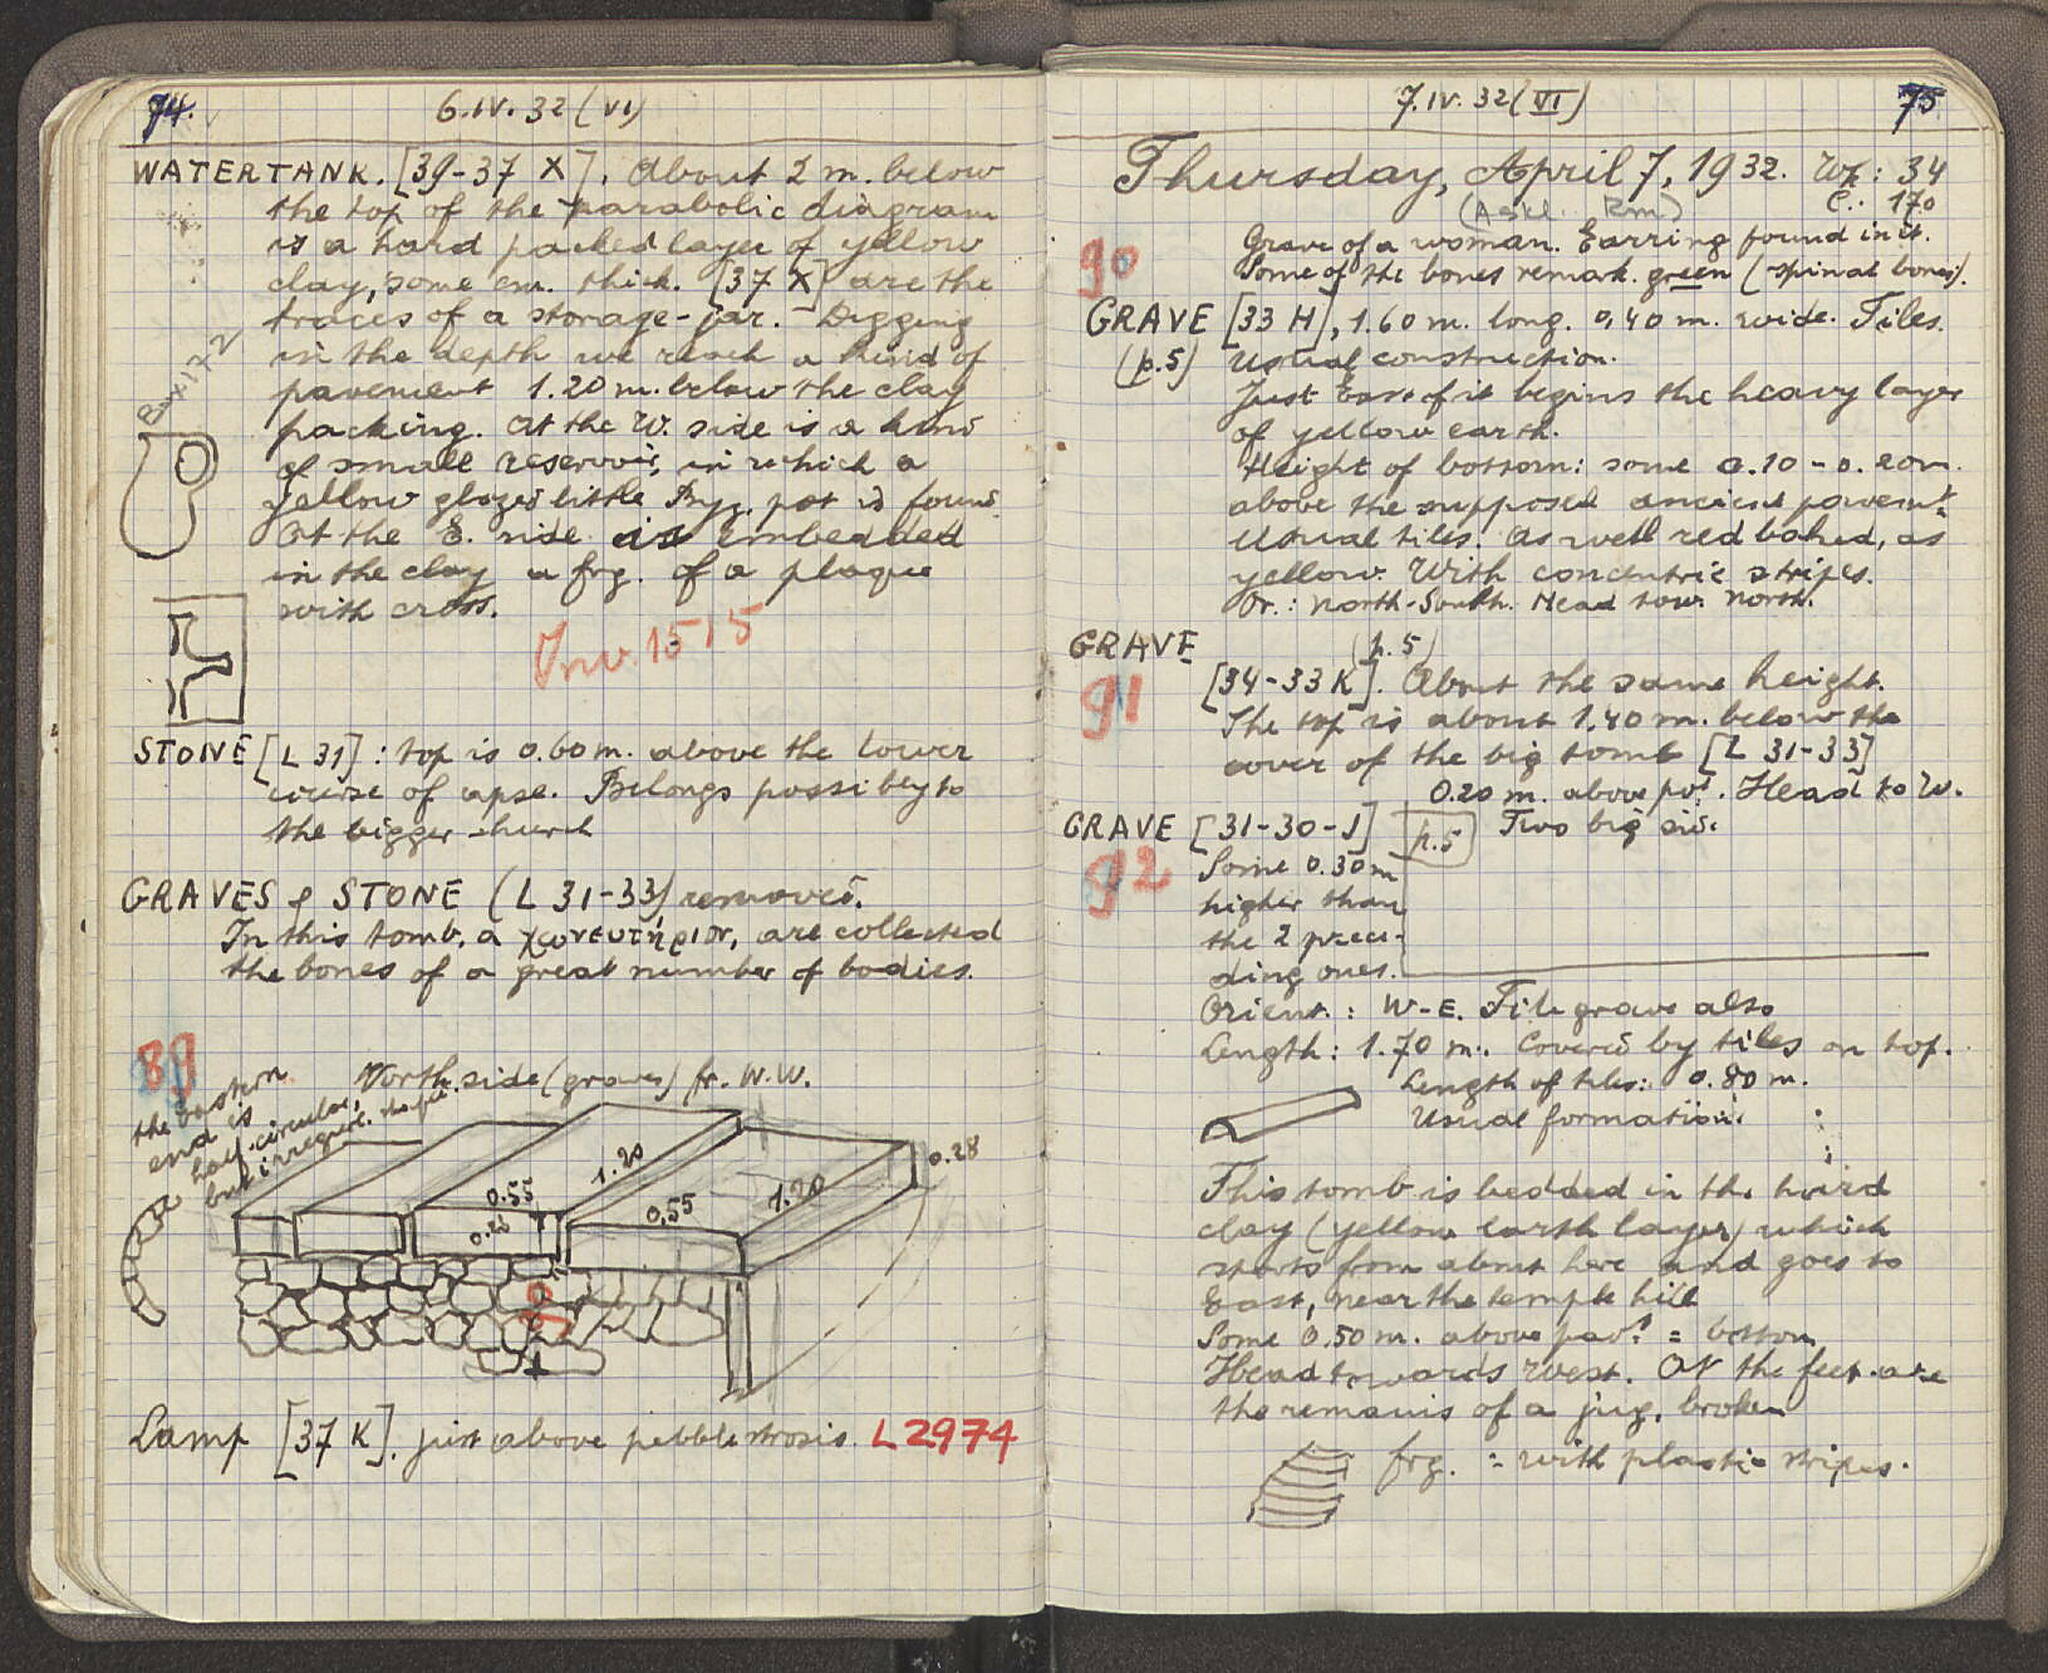 74.
6.IV.32 (VI)
WATERTANK. [39-37 X]. About 2 m. below
the top of the parabolic diagram
is a hard packed layer of yellow
clay, some cm. thick. [37 X] are the
traces of a storage-jar. Digging
in the depth we reach a kind of
pavement 1.20 m. below the clay
packing. At the W. side is a kind
of small reservoir, in which a
yellow glazed little Byz. pot is found.
At the E. side is embedded
in the clay a frg. of a plaque
with cross.
Inv. 1515
STONE [L 31] : top is 0.60 m. above the lower
course of apse. Belongs possibly to
the bigger church
GRAVES & STONE (L 31-33) removed.
In this tomb, a χωνευτήριον, are collected
the bones of a great number of bodies.
89
the eastern
end is
half-circular,
but irregul. shape
North side (graves) fr. W.W.
0.55
1.20
0.28
0.55
1.20
0.28
90
Lamp [37 K]. just above pebble strosis. L2974
7.IV.32 (VI)
75
Thursday, April 7, 1932. Wk: 34
C.: 170
(Askl. Rm)
90
Grave of a woman. Earring found in it.
Some of the bones remark. green (spinal bones).
GRAVE [33 H], 1.60 m. long. 0,40 m. wide. Tiles.
(p.5) Usual construction.
Just East of it begins the heavy layer
of yellow earth.
Height of bottom: some 0.10 - 0.20 m.
above the supposed ancient pavemt.
Usual tiles. As well red baked, as
yellow. With concentric stripes.
Or.: North-South. Head tow. North.
GRAVE (p. 5)
91
[34-33 K]. About the same height.
The top is about 1.40 m. below the
cover of the big tomb [L 31-33]
0.20 m. above pvt. Head to W.
GRAVE [31-30-J] p.5 Two big
92
Some 0.30 m
higher than
the 2 prece-
ding ones.
Orient. : W-E. Tile grave also
Length: 1.70 m. Covered by tiles on top.
Length of tiles: 0.80 m.
Usual formation.
This tomb is bedded in the hard
clay (yellow earth layer) which
starts from about here and goes to
East, near the temple hill
Some 0.50 m. above pavt. = bottom
Head towards West. At the feet are
the remains of a jug, broken
frg. : with plastic stripes.